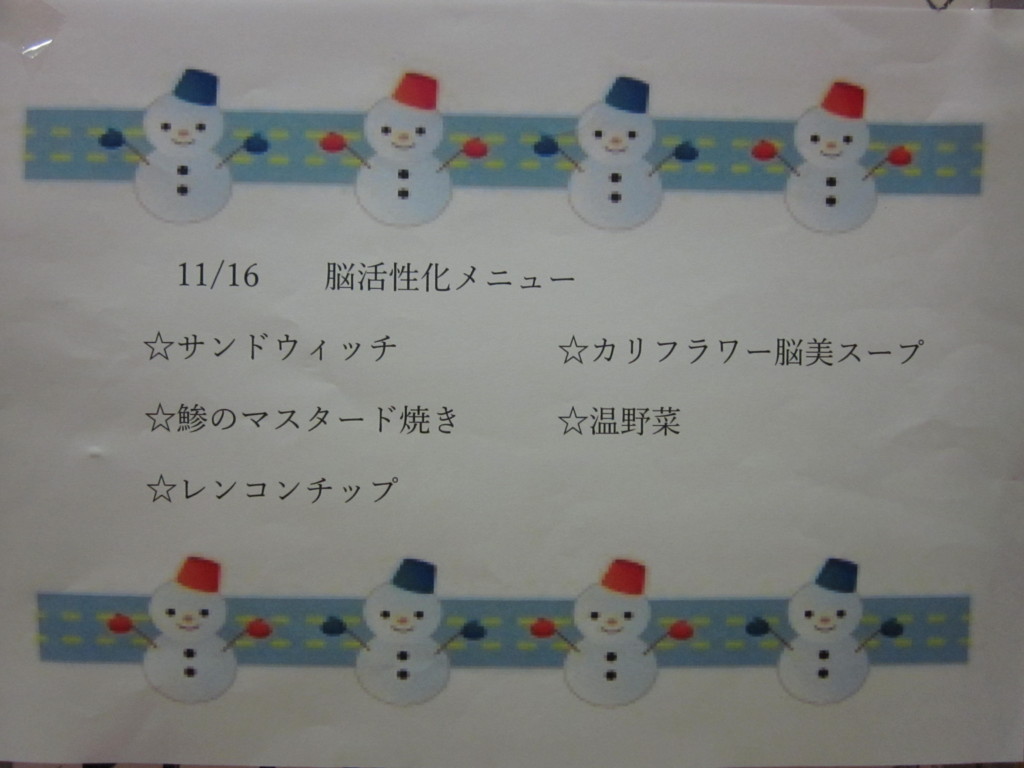 11/16　　脳活性化メニュー
☆サンドウィッチ　　☆カリフラワー脳美スープ
☆鯵のマスタード焼き　　☆温野菜
☆レンコンチップ